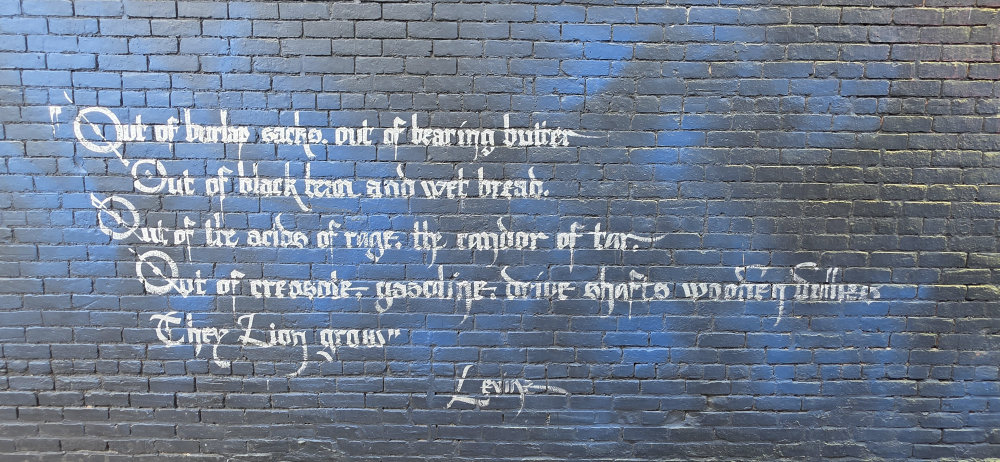 "Out of burlap sacks, out of bearing butter
Out of black bean and wet bread,
Out of the acids of rage, the candor of tar,
Out of creosote, gasoline, drive shafts wooden dollies
They Lion grow"
Levine